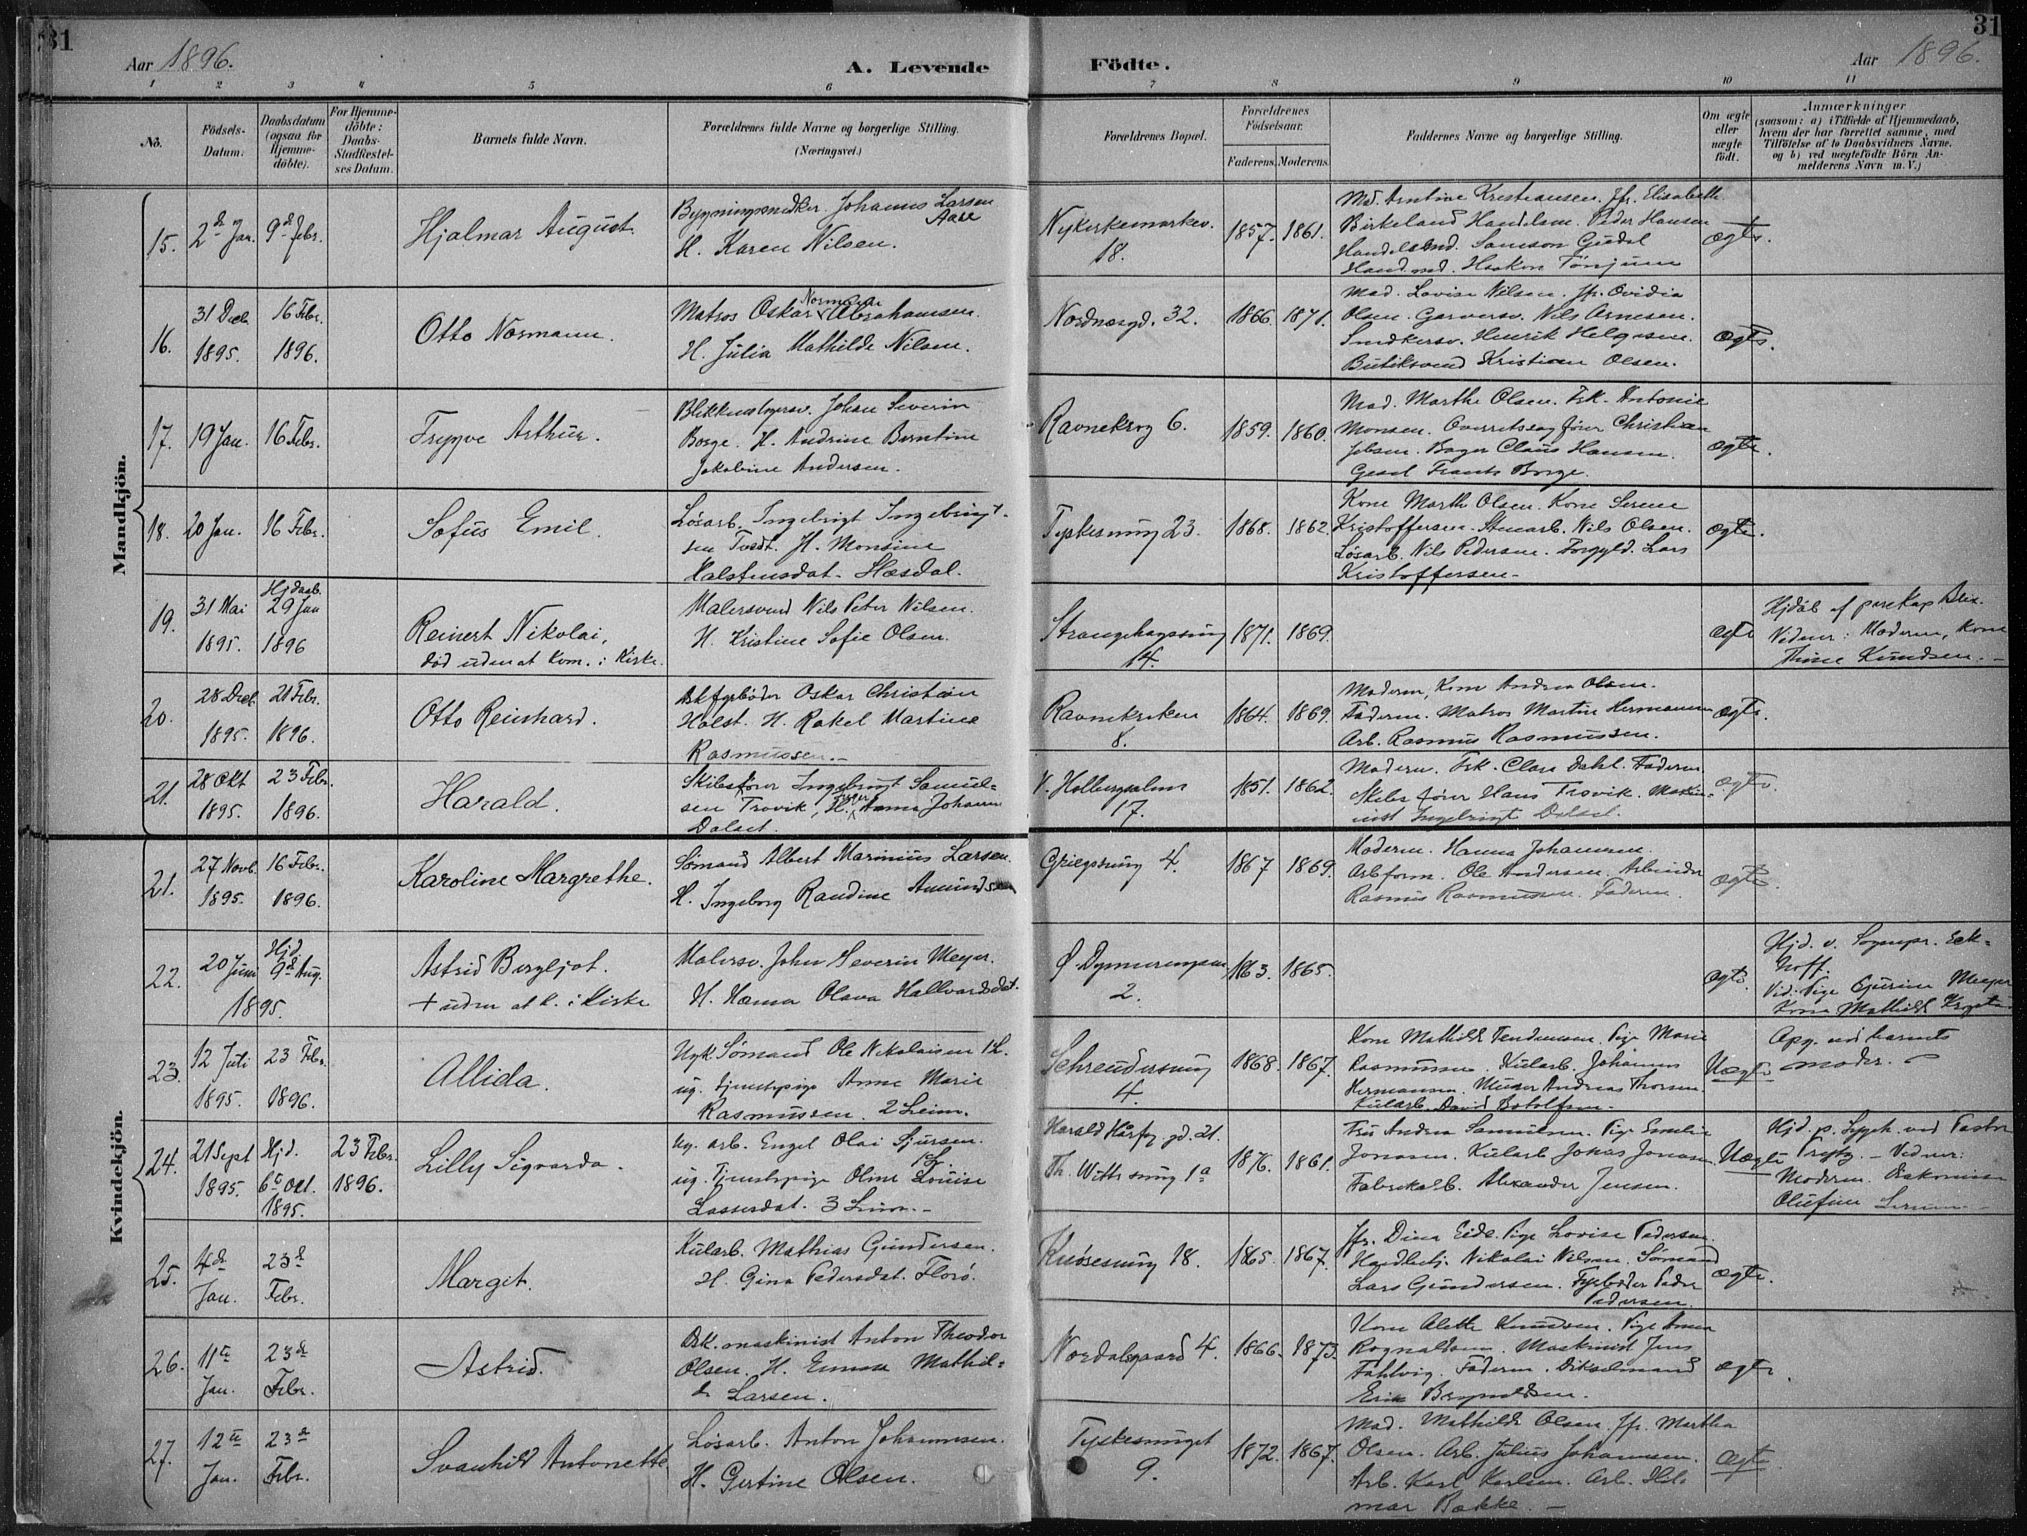 31
31
Aar 1896.
A. Levende
Födte.
Aar 1896.
1 2 3 4 5 6 7 8 9 10 11
No.
Födsels-
Datum.
Daabsdatum
(ogsaa for
Hjemme-
döbte).
For Hjemme-
döbte:
Daabs-
Stadfæstel-
ses Datum.
Barnets fulde Navn.
Forældrenes fulde Navne og borgerlige Stilling.
(Næringsvei.)
Forældrenes Bopæl.
Forældrenes
Födselsaar.
Faderens. Moderens.
Faddernes Navne og borgerlige Stilling.
Om ægte
eller
uægte
födt.
Anmærkninger
(saasom: a) i Tilfælde af Hjemmedaab,
hvem der har forrettet samme, med
Tilföielse af to Daabsvidners Navne,
og b) ved uægtefödte Börn An-
melderens Navn m. V.)
Mandkjön.
15. 2den Jan. 9de Febr.
Hjalmar August.
Bygningssnedker Johannes Larsen
Aase
H. Karen Nilsen.
Nykirkesmarkev.
18.
1857. 1861.
Md. Arntine Kristiansen. Jfr. Elisabeth
Birkeland. Handelsm. Peder Hansen
Handelsmd. Samson Gudal
Handmd. Haakon Tönjum
Ægte.
16. 31 Decb. 1895. 16 Febr. 1896.
Otto Normann.
Matros Oskar Normann Abrahamsen.
H. Julia Mathilde Nilsen.
Nordnæsgd. 32.
1866. 1871.
Mad. Lovise Nilsen. Jfr. Ovidia
Olsen. Garversv. Nils Arnesen.
Snedkersv. Henrik Helgesen.
Butiksvend Kristian Olsen.
Ægte.
17. 19 Jan. 16 Febr.
Trygve Arthur.
Blikkenslagersv. Johan Severin
Borge. H. Andrine Berntine
Jakobine Andersen.
Ravnekrog 6.
1859. 1860.
Mad. Marthe Olsen. Frk. Antonie
Monsen. Overretssagfører Christian
Jebsen. Bager Claus Hansen.
Gesel Frants Borge.
Ægte.
18. 20 Jan. 16 Febr.
Sofus Emil.
Løsarb. Ingebrigt Ingebrigt-
sen Tvedt. H. Monsine
Halstensdat. Hæsdal.
Tyskesmug 23.
1868. 1862.
Kone Marth Olsen. Kone Serene
Kristoffersen. Stenarb. Nils Olsen.
Løsarb. Nils Pedersen. Forgyld. Lars
Kristoffersen.
Ægte.
19. 31 Mai 1895. Hjdaab. 29 Jan 1896
Reinert Nikolai,
død uden at kom. i Kirke.
Malersvend Nils Peter Nilsen.
H. Kristine Sofie Olsen.
Strangehagssmug
14.
1871. 1869.
Ægte
Hjdøb. af pers. Kap. Blix.
Vidner: Moderen, Kone
Thine Knudsen.
20. 28 Decb. 1895. 21 Febr. 1896.
Otto Reinhard.
Oskar Christian
Holst. H. Rakel Martine
Rasmussen.
Ravnekroken
8.
1864. 1869.
Moderen, Kone Andrea Olsen.
Faderen. Matros Martin Hermansen
Arb. Rasmus Rasmussen.
Ægte.
21. 28 Okt 1895. 23 Febr. 1896.
Harald.
Skibsfører Ingebrigt Samuel-
sen Trovik, H. Anna Johanne
Dalset.
V. Holbergsalm.
17.
1851. 1862.
Moderen. Frk. Clara Dahl. Faderen
Skibsfører Hans Trovik. Maskin-
ist Ingebrigt Dalset.
Ægte.
Kvindekjön.
21. 27 Novb. 1895. 16 Febr. 1896.
Karoline Margrethe.
Sømand Albert Marinius Larsen.
H. Ingeborg Randine Amundsen
Griegssmug 4.
1867 1869.
Moderen. Hanna Johannesen.
Arbform. Ole Andersen. Arbeider
Rasmus Rasmussen. Faderen.
Ægte.
22. 20 Juni 9de Aug. Hjd. 1895.
Astrid Bergljot.
+ uden at k. i Kirke
Malersv. John Severin Meyer.
H. Hanna Olava Hallvardsdat.
2.
1863. 1865.
Ægte.
Hjd. v. Sognepr. Eck-
hoff.
Meyer
Kone Mathilde
23. 12 Juli 1895. 23 Febr. 1896.
Allida.
Ugk. Sømand Ole Nikolaisen 1 L.
ug. tjenestepige Anne Marie
Rasmussen. 2 Leierm.
Schreudersmug
4.
1868. 1867.
Kone Mathilde Pige Marie
Rasmussen. Kularb. Johannes
Hermansen. Murer Andreas Thorsen.
Kularb. David Botolfsen.
Uægte
Opg. ved barnets
moder.
24. 21 Sept 1895. Hjd. 6te Okt. 1895. 23 Febr. 1896.
Lilly Sigvarda.
Ug. arb. Engel Olai Sjursen. 1 L.
ug. Tjenestepige Oline Louise
Lassesdat. 3 Leierm.
Harald Hårfag. gd. 21.
Th. Witts smug 1a
1876. 1861.
Fru Andrea Samuelsen. Pige Emelie
Jonasen. Kularb. Jonas Jonasen.
Fabrikarb. Alexander Jensen.
Uægte
Hjd. p. Sygeh. ved Pastor
Vidner:
Moderen. Diakonisse
Olufine
25. 4de Jan. 23de Febr.
Margit.
Kularb. Mathias Gundersen.
H. Gina Pedersdat. Florø.
Knøsesmug 18.
1865. 1867.
Jfr. Dina Eide. Pige Lovise Pedersen.
Handbetj. Nikolai Nilsen. Sømand
Lars Gundersen. Fyrbøder Peder
Pedersen.
Ægte.
26. 11te Jan. 23de Febr.
Astrid.
Dsk. maskinist Anton Theodor
Olsen. H. Emma Mathil-
de Larsen.
Nordalsgaard 4.
1866. 1873.
Kone Alette Knudsen. Pige Anna
Rognaldsen. Maskinist Jens
Fahlvig. Faderen. Dikselmand
Erik Brynildsen.
Ægte.
27. 12te Jan. 23de Febr.
Svanhild Antonette
Løsarb. Anton Johannesen.
H. Gertine Olsen.
Tyskesmuget
9.
1872. 1867.
Mad. Mathilde Olsen. Jfr. Martha
Olsen. Arb. Julius Johannesen.
Arb. Karl Karlsen. Arb. Hel-
mar Bakke.
Ægte